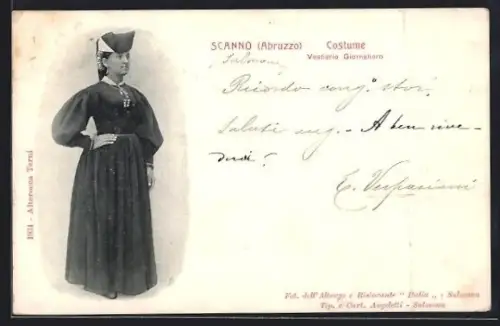 SCANNO (Abruzzo) Costume
Vestiario Giornaliero
Ricordo cong.
Saluti aug. - A ben rive-
derci!
E. Vespasiani
Fot. dell'Albergo e Ristorante "Italia„ : Sulmona
Tip. e Cart. Angeletti - Sulmona
Alterocca Terni